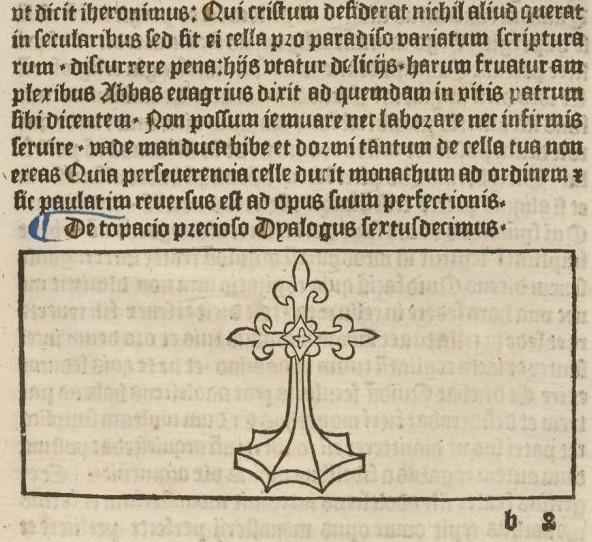 vt dicit iheronimus: Qui cristum desiderat nichil aliud querat
in secularibus sed sit ei cella pro paradiso variatum scriptura
rum · discurrere pena: hijs vtatur delicijs · harum fruatur am
plexibus Abbas euagrius dixit ad quemdam in vitis patrum
sibi dicentem · Non possum ieiunare nec laborare nec infirmis
seruire · vade manduca bibe et dormi tantum de cella tua non
exeas Quia perseuerencia celle ducit monachum ad ordinem ⁊
sic paulatim reuersus est ad opus suum perfectionis.
De topacio precioso Dyalogus sextusdecimus ·
b